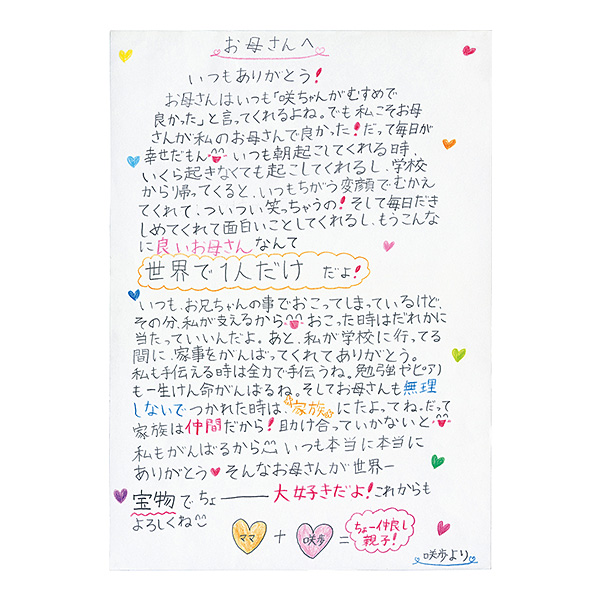 お母さんへ
いつもありがとう!
お母さんはいつも「咲ちゃんがむすめで
良かった」と言ってくれるよね。でも私こそお母
さんが私のお母さんで良かった!だって毎日が
幸せだもん いつも朝起こしてくれる時、
いくら起きなくても起こしてくれるし、学校
から帰ってくると、いつもちがう変顔でむかえ
てくれて、ついつい笑っちゃうの!そして毎日だき
しめてくれて面白いことしてくれるし、もうこんな
に良いお母さんなんて
世界で1人だけ だよ!
いつも、お兄ちゃんの事でおこってしまっているけど、
その分、私が支えるから おこった時はだれかに
当たっていいんだよ。あと、私が学校に行ってる
間に、家事をがんばってくれてありがとう。
私も手伝える時は全力で手伝うね。勉強やピアノ
も一生けん命がんばるね。そしてお母さんも無理
しないでつかれた時は、家族にたよってね。だって
家族は仲間だから!助け合っていかないと
私もがんばるから いつも本当に本当に
ありがとう♥そんなお母さんが世界一
宝物でちょ――― 大好きだよ!これからも
よろしくね
ママ + 咲歩 = ちょー仲良し
親子!
咲歩より